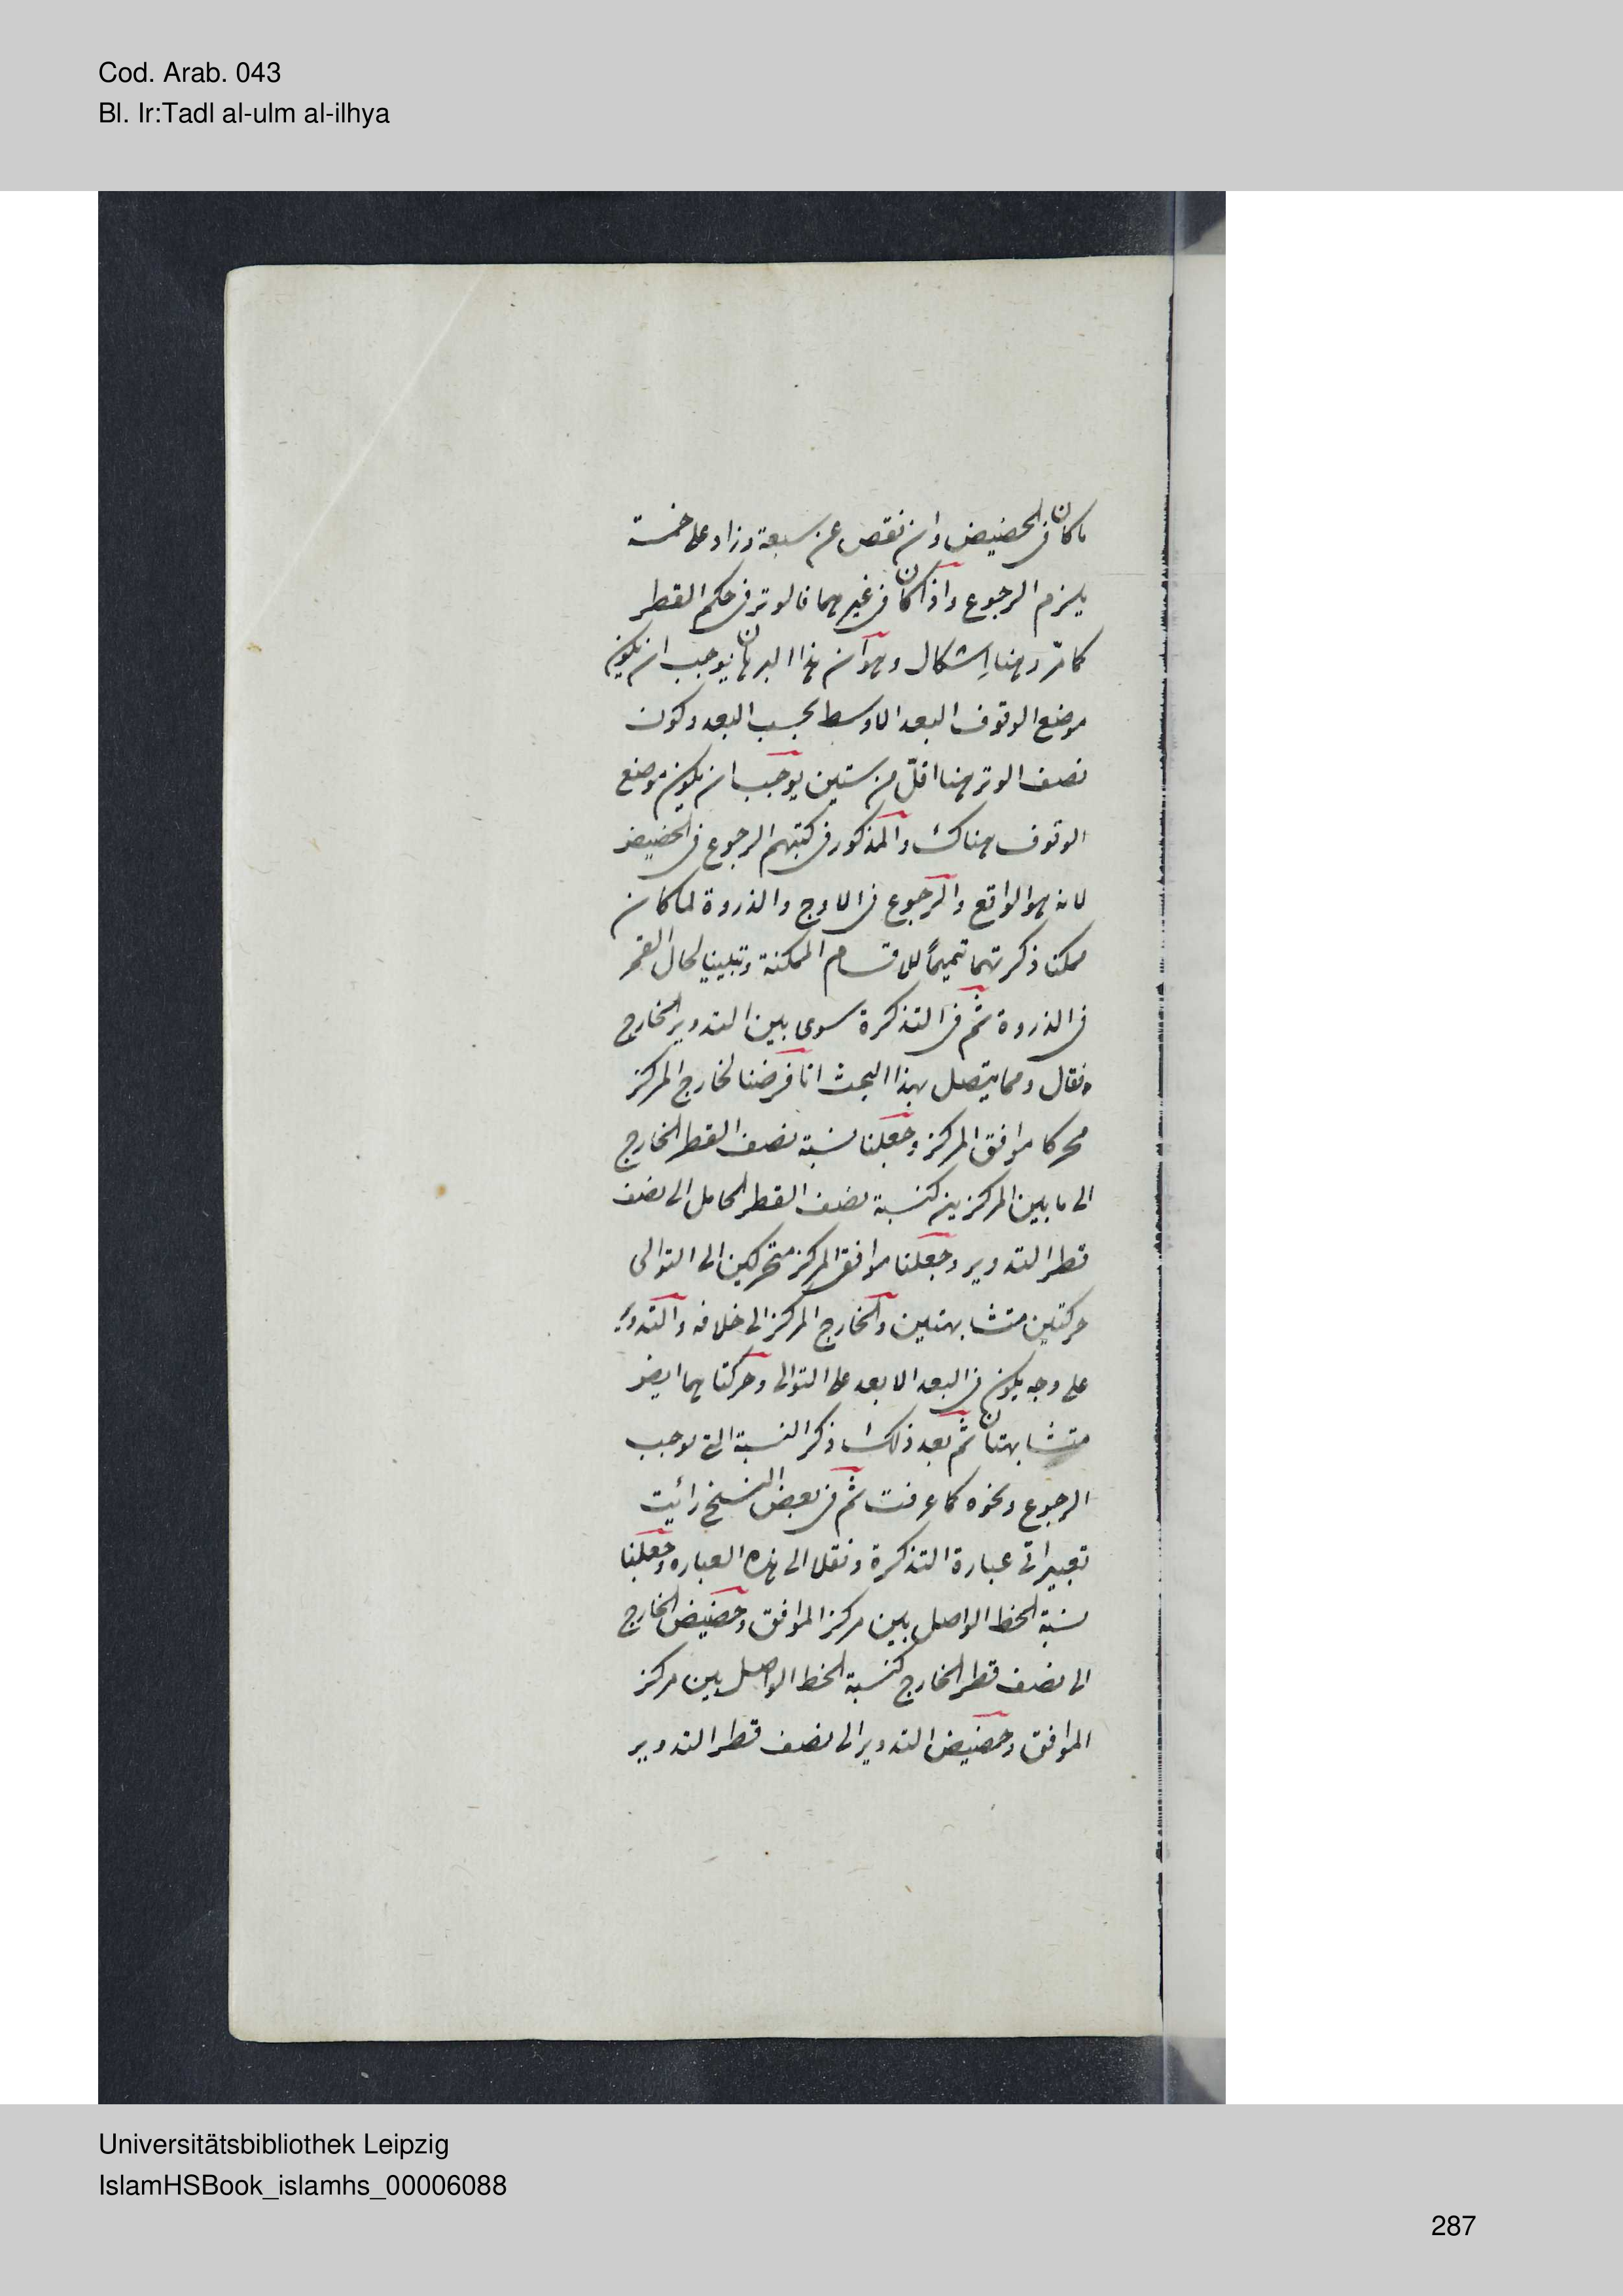 Cod. Arab. 043
Bl. Ir:Tadl al-ulm al-ilhya
ما كان فى الحضيض وان نقص عن سبعة وزاد على خمسة
يلزم الرجوع واذا كان فى غيرهما فالوتر فى حكم القطر
كما مرّ وهنا اِشكال وهو أن هذا البرهان يوجب ان يكون
موضع الوقوف البعد الاوسط بحسب البعد وكون
نصف الوتر هنا اقلّ من ستين يوجب ان يكون موضع
الوقوف هناك والمذكور فى كتبهم الرجوع فى الحضيض
لانه هو الواقع والرجوع فى الاوج والذروة لما كان
ممكنا ذكرتهما تتميماً للاقسام الممكنة وتبيينا لحال القمر
فى الذروة ثم فى التذكرة سوى بين التدوير الخارج
فقال ومما يتصل بهذا البحث انا فرضنا لخارج المركز
محركا موافق المركز وجعلنا نسبة نصف القطر الخارج
الى ما بين المركزين كنسبة نصف القطر الحامل الى نصف
قطر التدوير وجعلنا موافق المركز متحركين الى التوالى
حركتين متشابهتين والخارج المركز الى خلافه والتدوير
على وجه يكون فى البعد الابعد على التوالى وحركتاهما ايض
متشابهتان ثم بعد ذلك ذكر النسبة التى توجب
الرجوع ونحوه كما عرفت ثم فى بعض النسخ رأيت
تغييرا فى عبارة التذكرة ونقل الى هذه العباره وجعلنا
نسبة الخط الواصل بين مركز الموافق وحضيض الخارج
الى نصف قطر الخارج كنسبة الخط الواصل بين مركز
الموافق وحضيض التدوير الى نصف قطر التدوير
Universitätsbibliothek Leipzig
IslamHSBook_islamhs_00006088
287